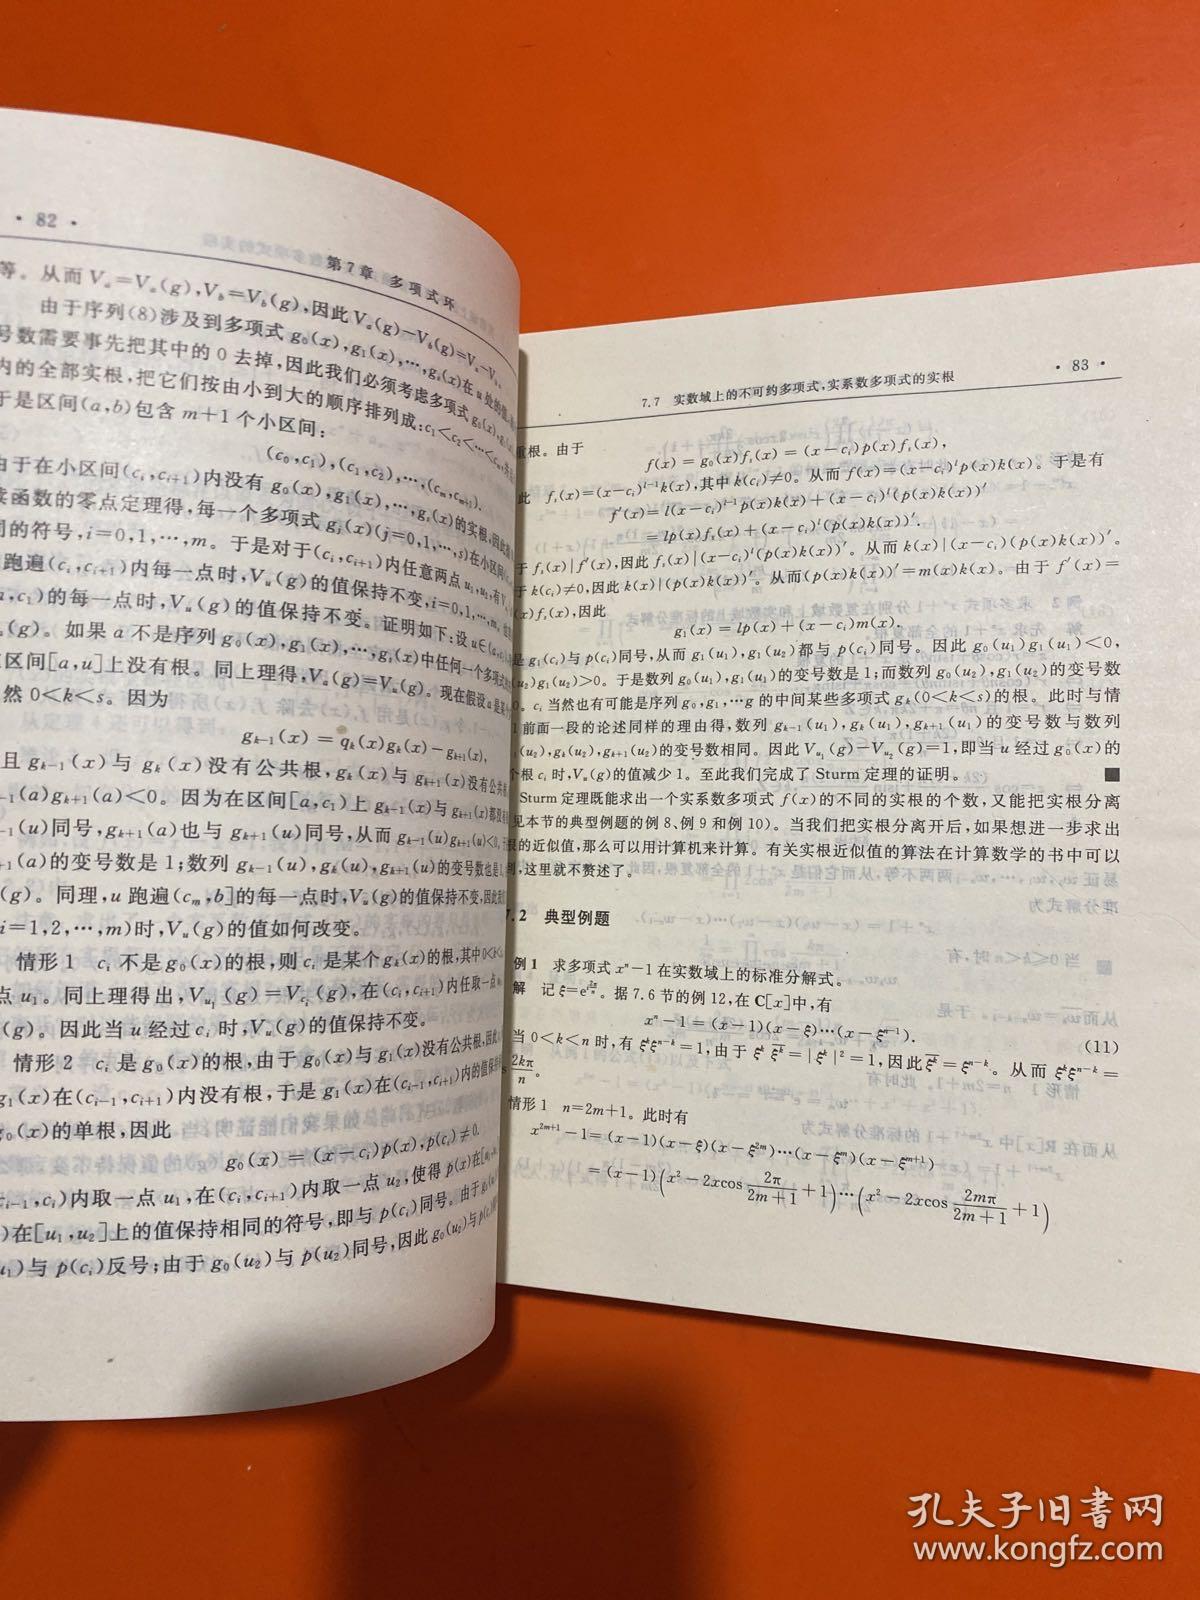 · 82 ·
第7章 多项式环
等。从而 Vₐ=Vₐ(g),V_b=V_b(g),因此 Vₐ(g)−V_b(g)=Vₐ−V_b
由于序列(8)涉及到多项式 g₀(x),g₁(x),…,gₛ(x)在 u 处的值
号数需要事先把其中的 0 去掉,因此我们必须考虑多项式 g₀(x),g₁
内的全部实根,把它们按由小到大的顺序排列成:c₁<c₂<…<cₘ
于是区间(a,b)包含 m+1 个小区间:
(c₀,c₁),(c₁,c₂),…,(cₘ,cₘ₊₁).
由于在小区间(cᵢ,cᵢ₊₁)内没有 g₀(x),g₁(x),…,gₛ(x)的实根,因此
续函数的零点定理得,每一个多项式 gⱼ(x)(j=0,1,…,s)在小区间(cᵢ
同的符号,i=0,1,…,m。于是对于(cᵢ,cᵢ₊₁)内任意两点 u₁,u₂,有 V
跑遍(cᵢ,cᵢ₊₁)内每一点时,Vᵤ(g)的值保持不变,i=0,1,…,m。
a,c₁)的每一点时,Vᵤ(g)的值保持不变。证明如下:设 u∈(a,c₁)
ₐ(g)。如果 a 不是序列 g₀(x),g₁(x),…,gₛ(x)中任何一个多项式
区间[a,u]上没有根。同上理得,Vₐ(g)=Vᵤ(g)。现在假设 a 是某个
然 0<k<s。因为
gₖ₋₁(x)=qₖ(x)gₖ(x)−gₖ₊₁(x),
且 gₖ₋₁(x)与 gₖ(x)没有公共根,gₖ(x)与 gₖ₊₁(x)没有公共
₋₁(a)gₖ₊₁(a)<0。因为在区间[a,c₁)上 gₖ₋₁(x)与 gₖ₊₁(x)都没
₋₁(u)同号,gₖ₊₁(a)也与 gₖ₊₁(u)同号,从而 gₖ₋₁(u)gₖ₊₁(u)<0,
₊₁(a)的变号数是 1;数列 gₖ₋₁(u),gₖ(u),gₖ₊₁(u)的变号数也是 1
(g)。同理,u 跑遍(cₘ,b]的每一点时,Vᵤ(g)的值保持不变,因此
i=1,2,…,m)时,Vᵤ(g)的值如何改变。
情形 1 cᵢ 不是 g₀(x)的根,则 cᵢ 是某个 gₖ(x)的根,其中 0<k<s
点 u₁。同上理得出,V_{u₁}(g)=V_{cᵢ}(g),在(cᵢ,cᵢ₊₁)内任取一点
(g)。因此当 u 经过 cᵢ 时,Vᵤ(g)的值保持不变。
情形 2 cᵢ 是 g₀(x)的根,由于 g₀(x)与 g₁(x)没有公共根,因此
g₁(x)在(cᵢ₋₁,cᵢ₊₁)内没有根,于是 g₁(x)在(cᵢ₋₁,cᵢ₊₁)内的值保持
g₀(x)的单根,因此
g₀(x)=(x−cᵢ)p(x),p(cᵢ)≠0.
ᵢ₋₁,cᵢ)内取一点 u₁,在(cᵢ,cᵢ₊₁)内取一点 u₂,使得 p(x)在[u₁,u₂
)在[u₁,u₂]上的值保持相同的符号,即与 p(cᵢ)同号。由于 g₀(u₁)
u₁)与 p(cᵢ)反号;由于 g₀(u₂)与 p(u₂)同号,因此 g₀(u₂)与 p(cᵢ)
7.7 实数域上的不可约多项式,实系数多项式的实根
· 83 ·
重根。由于
f(x)=g₀(x)fₛ(x)=(x−cᵢ)p(x)fₛ(x),
此 fₛ(x)=(x−cᵢ)^{l−1}k(x),其中 k(cᵢ)≠0。从而 f(x)=(x−cᵢ)^l p(x)k(x)。于是有
f′(x)=l(x−cᵢ)^{l−1}p(x)k(x)+(x−cᵢ)^l(p(x)k(x))′
=lp(x)fₛ(x)+(x−cᵢ)^l(p(x)k(x))′.
于 fₛ(x)|f′(x),因此 fₛ(x)|(x−cᵢ)^l(p(x)k(x))′。从而 k(x)|(x−cᵢ)(p(x)k(x))′。
于 k(cᵢ)≠0,因此 k(x)|(p(x)k(x))′。从而(p(x)k(x))′=m(x)k(x)。由于 f′(x)=
(x)fₛ(x),因此
g₁(x)=lp(x)+(x−cᵢ)m(x).
是 g₁(cᵢ)与 p(cᵢ)同号,从而 g₁(u₁),g₁(u₂)都与 p(cᵢ)同号。因此 g₀(u₁)g₁(u₁)<0,
(u₂)g₁(u₂)>0。于是数列 g₀(u₁),g₁(u₁)的变号数是 1;而数列 g₀(u₂),g₁(u₂)的变号数
0。cᵢ 当然也有可能是序列 g₀,g₁,…g 的中间某些多项式 gₖ(0<k<s)的根。此时与情
1 前面一段的论述同样的理由得,数列 gₖ₋₁(u₁),gₖ(u₁),gₖ₊₁(u₁)的变号数与数列
₁(u₂),gₖ(u₂),gₖ₊₁(u₂)的变号数相同。因此 V_{u₁}(g)−V_{u₂}(g)=1,即当 u 经过 g₀(x)的
个根 cᵢ 时,Vᵤ(g)的值减少 1。至此我们完成了 Sturm 定理的证明。 ■
Sturm 定理既能求出一个实系数多项式 f(x)的不同的实根的个数,又能把实根分离
见本节的典型例题的例 8、例 9 和例 10)。当我们把实根分离开后,如果想进一步求出
根的近似值,那么可以用计算机来计算。有关实根近似值的算法在计算数学的书中可以
到,这里就不赘述了。
7.2 典型例题
例 1 求多项式 xⁿ−1 在实数域上的标准分解式。
解 记 ξ=e^{i2π/n}。据 7.6 节的例 12,在 C[x]中,有
xⁿ−1=(x−1)(x−ξ)…(x−ξⁿ⁻¹). (11)
当 0<k<n 时,有 ξᵏξⁿ⁻ᵏ=1,由于 ξᵏ\overline{ξᵏ}=|ξᵏ|²=1,因此\overline{ξᵏ}=ξⁿ⁻ᵏ。从而 ξᵏ+ξⁿ⁻ᵏ=
s\frac{2kπ}{n}。
情形 1 n=2m+1。此时有
x^{2m+1}−1=(x−1)(x−ξ)(x−ξ^{2m})…(x−ξᵐ)(x−ξ^{m+1})
=(x−1)(x²−2xcos\frac{2π}{2m+1}+1)…(x²−2xcos\frac{2mπ}{2m+1}+1)
孔夫子旧书网
www.kongfz.com